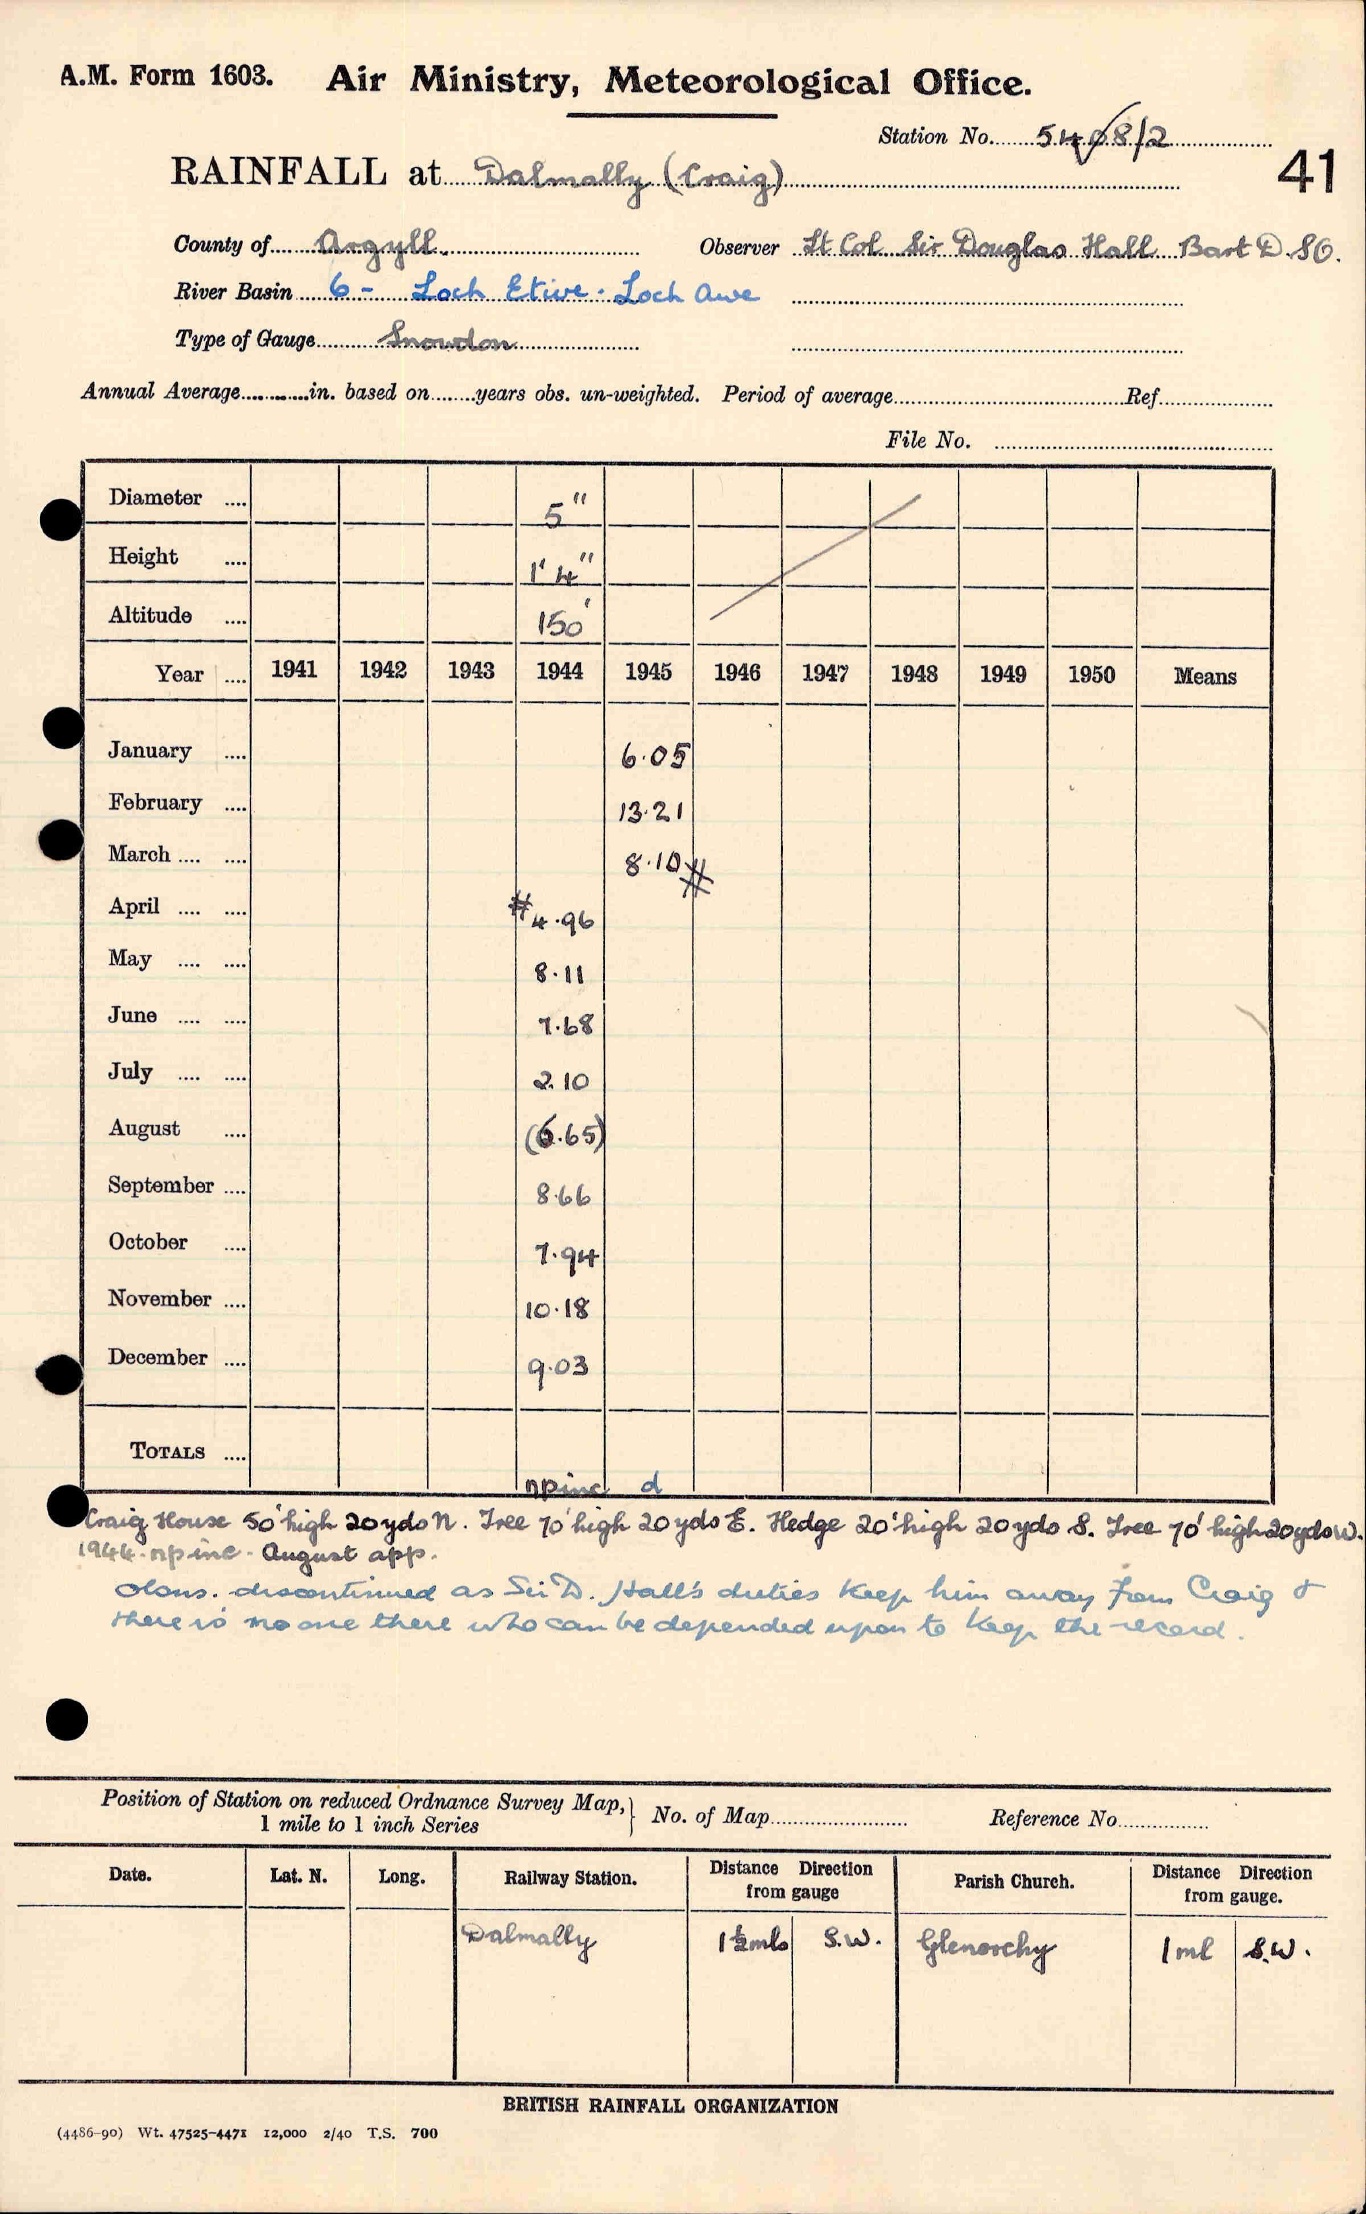 A.M. Form 1603. Air Ministry, Meteorological Office.
Station No. 5408/2
41
RAINFALL at Dalmally (Craig)
County of Argyll. Observer Lt Col Sir Douglas Hall Bart D.SO.
River Basin 6 - Loch Etive. Loch Awe
Type of Gauge Snowdon
Annual Average in. based on years obs. un-weighted. Period of average Ref
File No.
Diameter 5"
Height 1' 4"
Altitude 150'
Year 1941 1942 1943 1944 1945 1946 1947 1948 1949 1950 Means
January 6.05
February 13.21
March 8.10 #
April # 4.96
May 8.11
June 7.68
July 2.10
August (6.65)
September 8.66
October 7.94
November 10.18
December 9.03
TOTALS
npinc d
Craig House 50' high 20 yds N. Tree 70' high 20 yds E. Hedge 20' high 20 yds S. Tree 70' high 20 yds W.
1944. npinc. August app.
obsns. discontinued as Sir D. Hall's duties keep him away from Craig &
there is no one there who can be depended upon to keep the record.
Position of Station on reduced Ordnance Survey Map, 1 mile to 1 inch Series } No. of Map Reference No.
Date. Lat. N. Long. Railway Station. Distance Direction from gauge Parish Church. Distance Direction from gauge.
Dalmally 1½ mls S.W. Glenorchy 1 ml S.W.
BRITISH RAINFALL ORGANIZATION
(4486-90) Wt. 47525-4471 12,000 2/40 T.S. 700